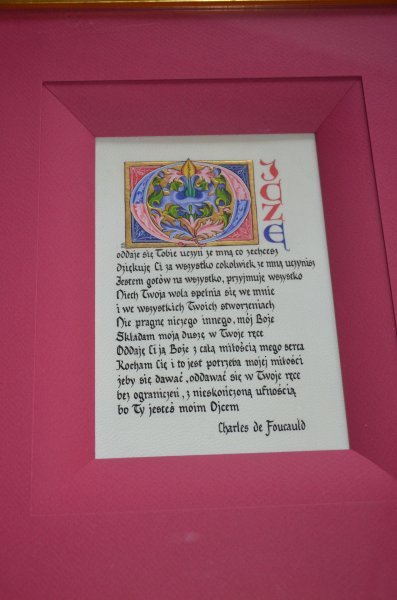 OJCZE
oddaję się Tobie uczyń ze mną co zechcesz
Dziękuję Ci za wszystko cokolwiek ze mną uczynisz
Jestem gotów na wszystko, przyjmuję wszystko
Niech Twoja wola spełnia się we mnie
i we wszystkich Twoich stworzeniach
Nie pragnę niczego innego, mój Boże
Składam moją duszę w Twoje ręce
Oddaję Ci ją Boże z całą miłością mego serca
Kocham Cię i to jest potrzeba mojej miłości
żeby się dawać, oddawać się w Twoje ręce
bez ograniczeń, z nieskończoną ufnością
bo Ty jesteś moim Ojcem
Charles de Foucauld